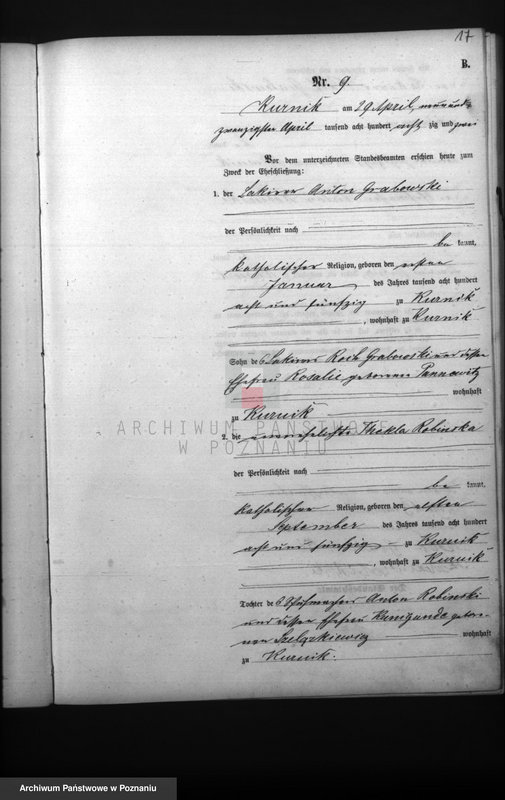 17
B.
Nr. 9.
Kurnik am 29 April, neunund-
zwanzigsten April tausend acht hundert acht zig und zwei
Vor dem unterzeichneten Standesbeamten erschien heute zum
Zweck der Eheschließung:
1. der Lakirer Anton Grabowski
der Persönlichkeit nach
be kannt,
katholischer Religion, geboren den ersten
Januar des Jahres tausend acht hundert
acht und fünfzig zu Kurnik
, wohnhaft zu Kurnik
Sohn des Lakirers Roch Grabowski und dessen
Ehefrau Rosalie geborenen
wohnhaft
zu Kurnik
2. die unverehelichte Thekla Robinska
der Persönlichkeit nach
be kannt,
katholischer Religion, geboren den elften
September des Jahres tausend acht hundert
acht und fünfzig zu Kurnik
, wohnhaft zu Kurnik
Tochter des Anton Robinski
und dessen Ehefrau Kunigunde gebore-
nen Szelążkiewicz wohnhaft
zu Kurnik.
ARCHIWUM PAŃSTWOWE
W POZNANIU
Archiwum Państwowe w Poznaniu